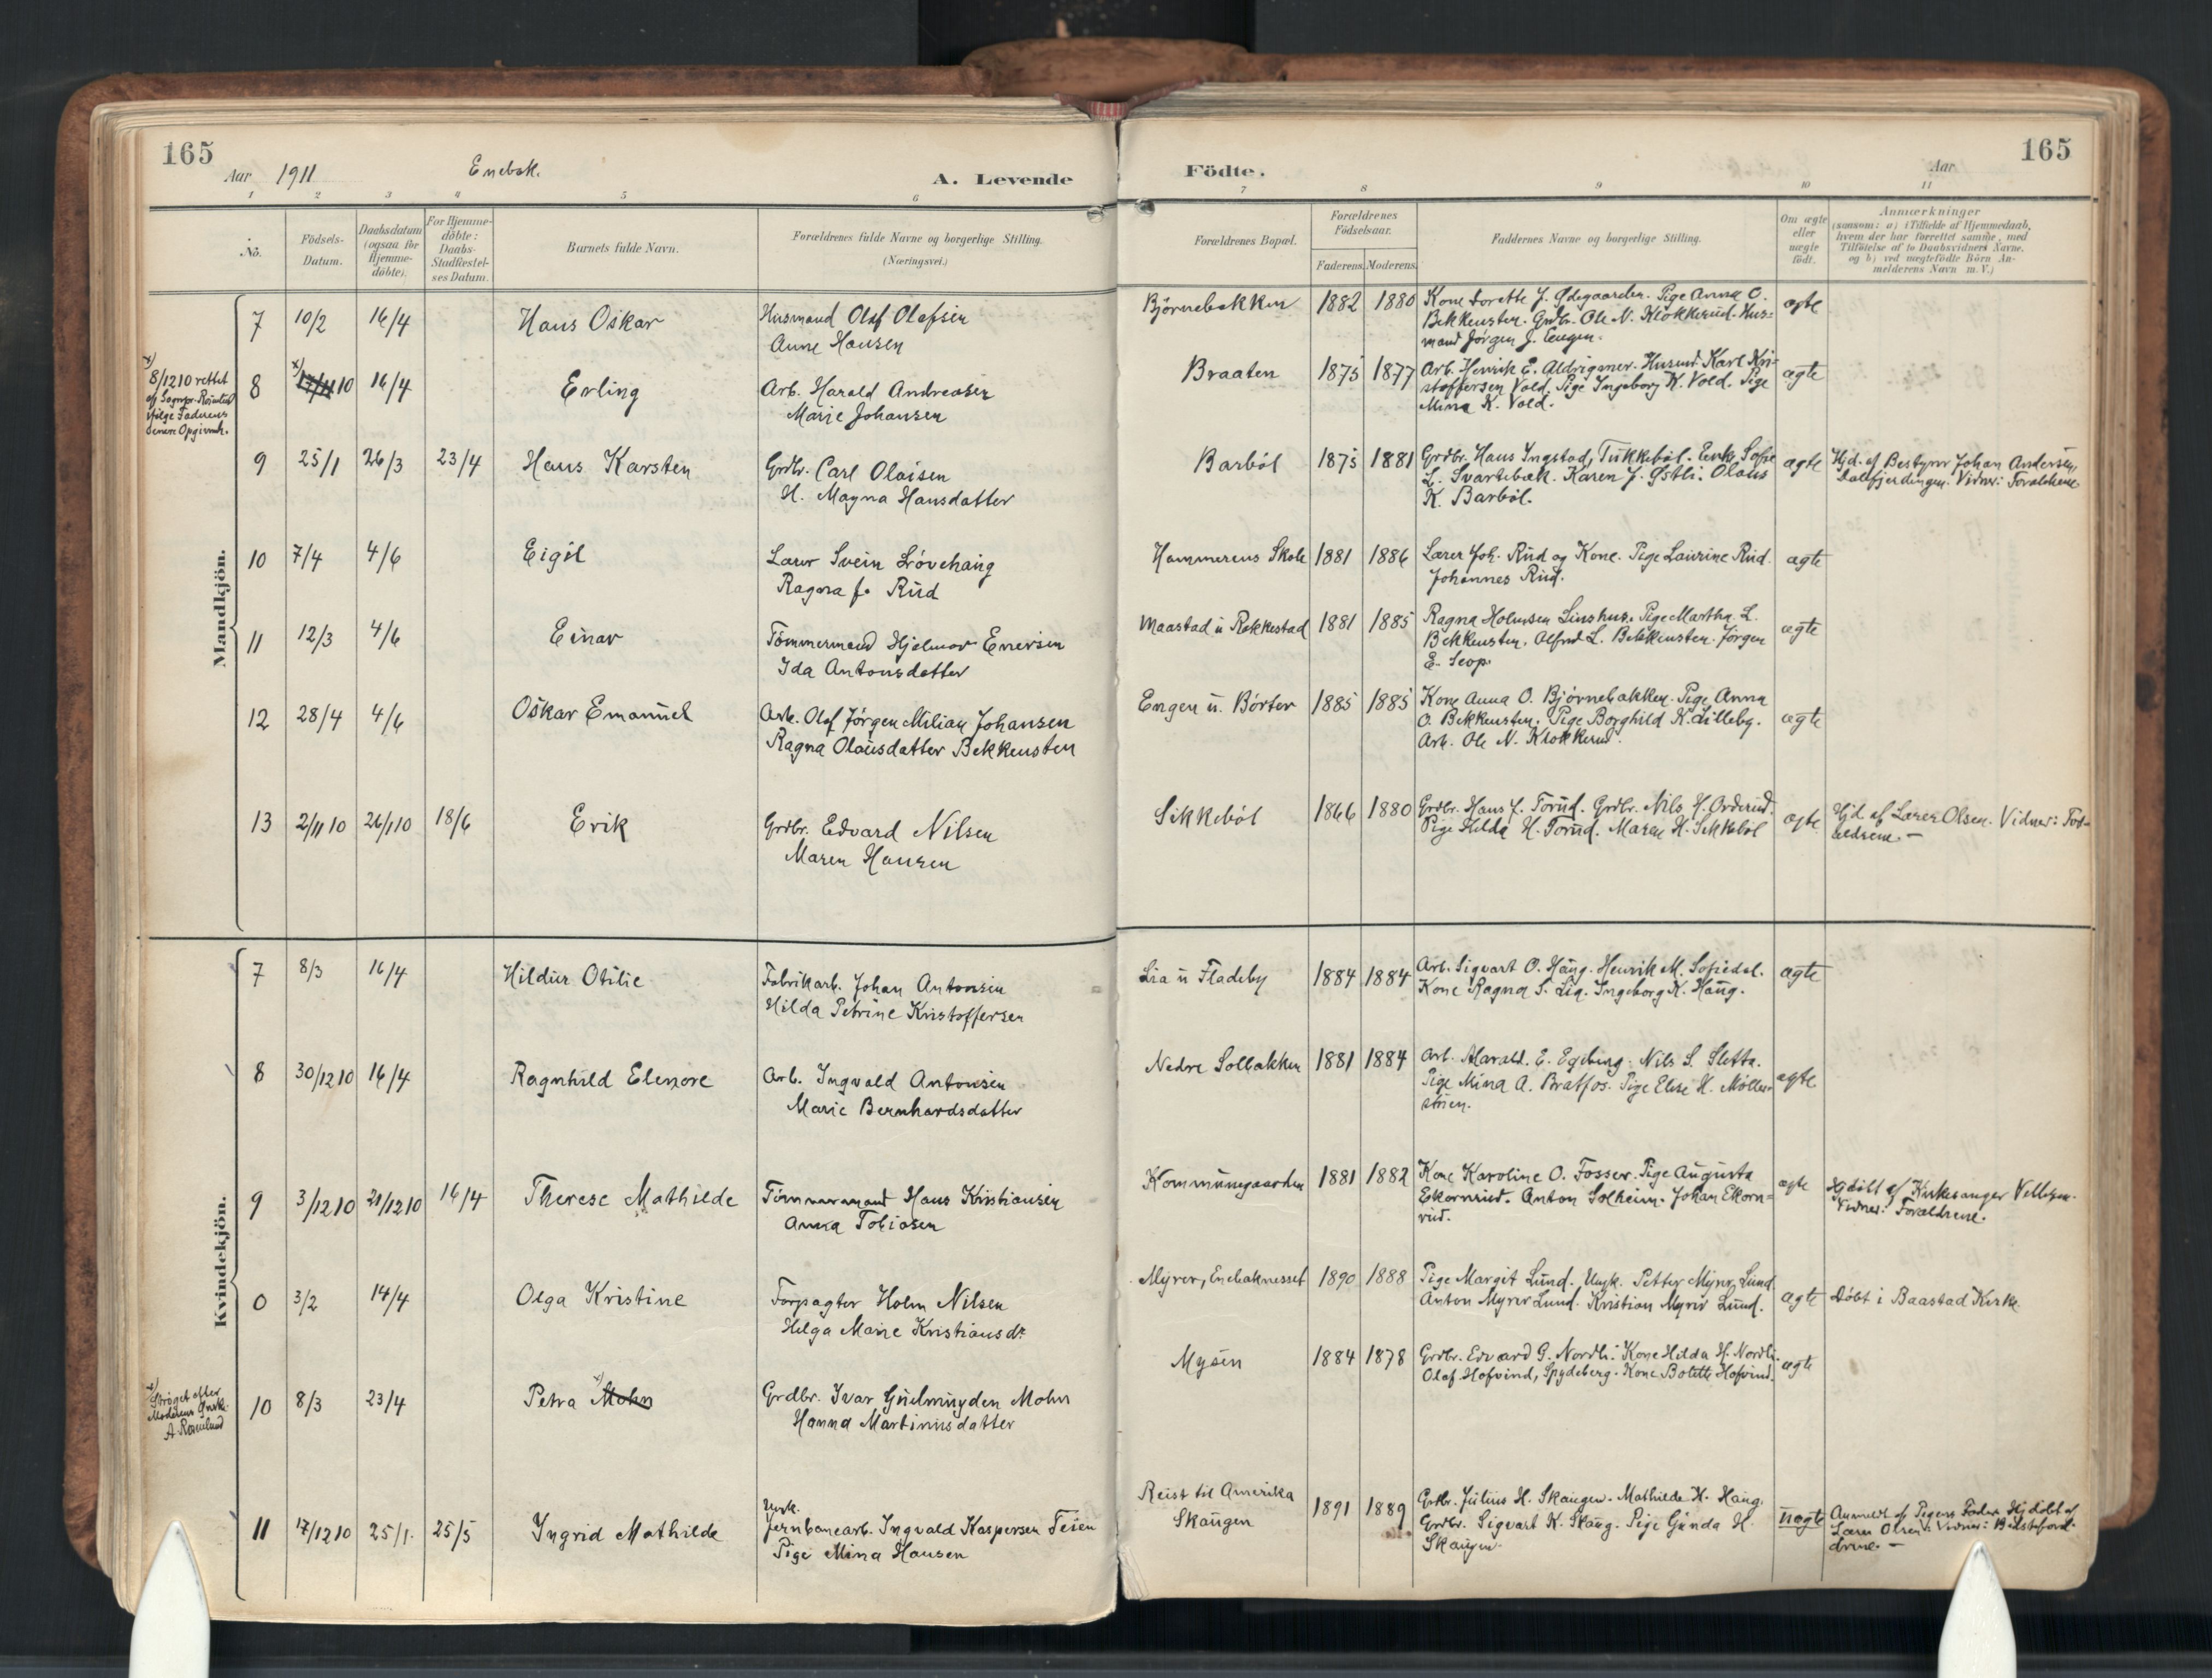 165
Aar 1911
Enebak.
A. Levende
Födte.
Aar
165
1 2 3 4 5 6 7 8 9 10 11
No.
Födsels-
Datum.
Daabsdatum
(ogsaa for
Hjemme-
döbte).
For Hjemme-
döbte:
Daabs-
Stadfæstel-
ses Datum.
Barnets fulde Navn.
Forældrenes fulde Navne og borgerlige Stilling.
(Næringsvei.)
Forældrenes Bopæl.
Forældrenes
Födselsaar.
Faderens. Moderens.
Faddernes Navne og borgerlige Stilling.
Om ægte
eller
uægte
födt.
Anmærkninger
(saasom: a) i Tilfælde af Hjemmedaab,
hvem der har forrettet samme, med
Tilföielse af to Daabsvidners Navne,
og b) ved uægtefödte Börn An-
melderens Navn m.V.)
Mandkjön.
7 10/2 16/4 Hans Oskar
Husmand Olaf Olafsen
Anne Hansen
Björnebakken 1882 1880
Kone Dorette J. Ödegaarden. Pige Anna O.
Bekkensten. Grdbr. Ole N. Klokkerud. Hus-
mand Jörgen J. Engen.
ægte
x)
8/12 10 rettet
af Sognepr.
ifölge Faderens
senere Opgivende.
8 x) 10 16/4 Erling
Arb. Harald Andreasen
Marie Johansen
Braaten 1875 1877
Arb. Henrik E. Aldrigmer. Husmd. Karl Kri-
stoffersen Vold. Pige Ingeborg K. Vold. Pige
Mina K. Vold.
ægte
9 25/1 26/3 23/4 Hans Karsten
Grdbr. Carl Olaisen
H. Magna Hansdatter
Barböl 1875 1881
Grdbr. Hans Ingstad, Tukkeböl. Enke Sofie
L. Svartebæk. Karen J. Östli. Olaus
K. Barböl.
ægte
Hjd. af Bestyrer Johan Andersen,
Dalefjerdingen. Vidner: Forældrene.
10 7/4 4/6 Eigil
Lærer Svein Lövehaug
Ragna f. Rud
Hammerens Skole 1881 1886
Lærer Joh. Rud og Kone. Pige Laurine Rud.
Johannes Rud.
ægte
11 12/3 4/6 Einar
Tömmermand Hjalmar Enersen
Ida Antonsdatter
Maastad u Rakkestad 1881 1885
Ragna Holmsen Linshus. Pige Martha L.
Bekkensten. Alfred L. Bekkensten. Jörgen
E. Scop.
ægte
12 28/4 4/6 Oskar Emanuel
Arb. Olaf Jörgen Milian Johansen
Ragna Olausdatter Bekkensten
Engen u. Börter 1885 1885
Kone Anna O. Björnebakken. Pige Anna
O. Bekkensten. Pige Borghild K. Lilleby.
Arb. Ole N. Klokkerud.
ægte
13 2/11 10 26/1 10 18/6 Erik
Grdbr. Edvard Nilsen
Maren Hansen
Sikkeböl 1866 1880
Grdbr. Hans J. Torud. Grdbr. Nils H. Orderud.
Pige Hilda H. Torud. Maren H. Sikkeböl
ægte
Hjd af Lærer Olsen. Vidner: For-
ældrene. –
Kvindekjön.
7 8/3 16/4 Hildur Otilie
Fabrikarb. Johan Antonsen
Hilda Petrine Kristoffersen
Lia u Fladeby 1884 1884
Arb. Sigvart O. Haug. Henrik M. Sofiedal.
Kone Ragna S. Lia. Ingeborg K. Haug.
ægte
8 30/12 10 16/4 Ragnhild Elenore
Arb. Ingvald Antonsen
Marie Bernhardsdatter
Nedre Solbakken 1881 1884
Arb. Harald. E. Egeberg. Nils S. Sletta.
Pige Mina A. Bratfos. Pige Elise H. Möller-
stuen.
ægte
9 3/12 10 21/12 10 16/4 Therese Mathilde
Tömmermand Hans Kristiansen
Anna Tobiasen
Kommunegaarden 1881 1882
Kone Karoline O. Fosser. Pige Augusta
Ekornrud. Anton Solheim. Johan Ekorn-
rud.
ægte
Hjdöbt af Kirkesanger
Vidner: Forældrene.
0 3/2 14/4 Olga Kristine
Forpagter Holm Nilsen
Helga Marie Kristiansdr.
Myrer, Enebaknesset 1890 1888
Pige Margit Lund. Ungk. Petter Myrer Lund
Anton Myrer Lund. Kristian Myrer Lund.
ægte
Döbt i Baastad Kirke.
x)
Ströget efter
Moderens Önske.
A.
10 8/3 23/4 Petra x) Mohn
Grdbr. Ivar Güelmuyden Mohn
Hanna Martinusdatter
Mysen 1884 1878
Grdbr. Edvard G. Nordli. Kone Hilda H. Nordli.
Olaf Hofvind, Spydeberg. Kone Bolette Hofvind.
ægte
11 17/12 10 25/1. 25/5 Ingrid Mathilde
Ungk.
Jernbanearb. Ingvald Kaspersen Teien
Pige Mina Hansen
Reist til Amerika
Skaugen 1891 1889
Grdbr. Julius H. Skaugen. Mathilde K. Haug.
Grdbr. Sigvart K. Skaug. Pige Gunda H.
Skaugen.
uægte
Anmeldt af Pigens Fader. Hjdöbt af
Lærer Olsen. Vidner: Bedsteforæl-
drene. –